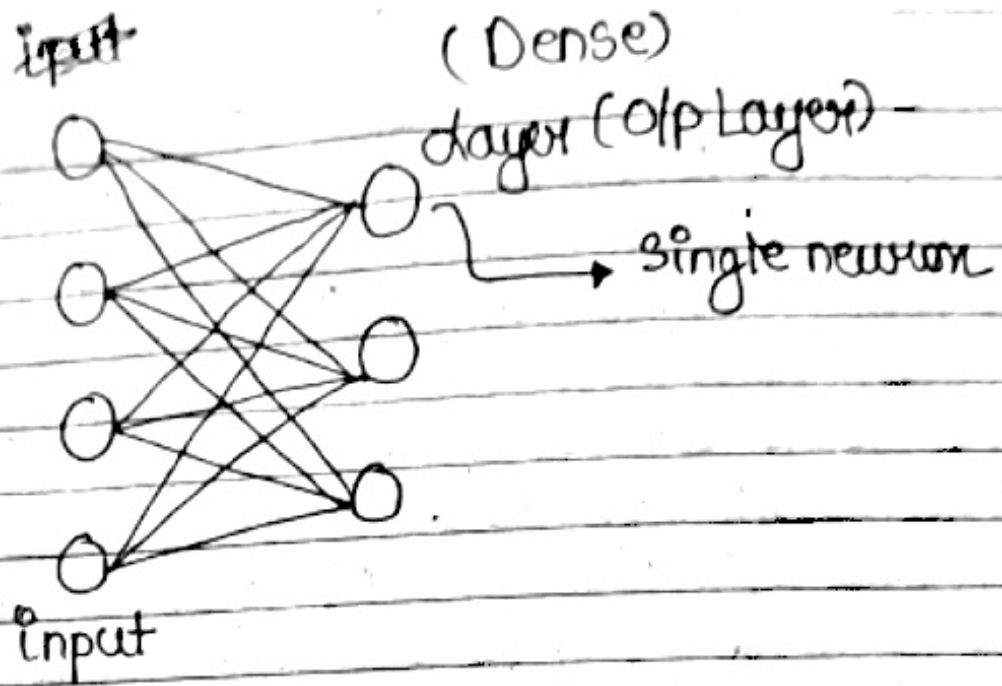 input
(Dense)
Layer (O/P Layer) -
single neuron
input